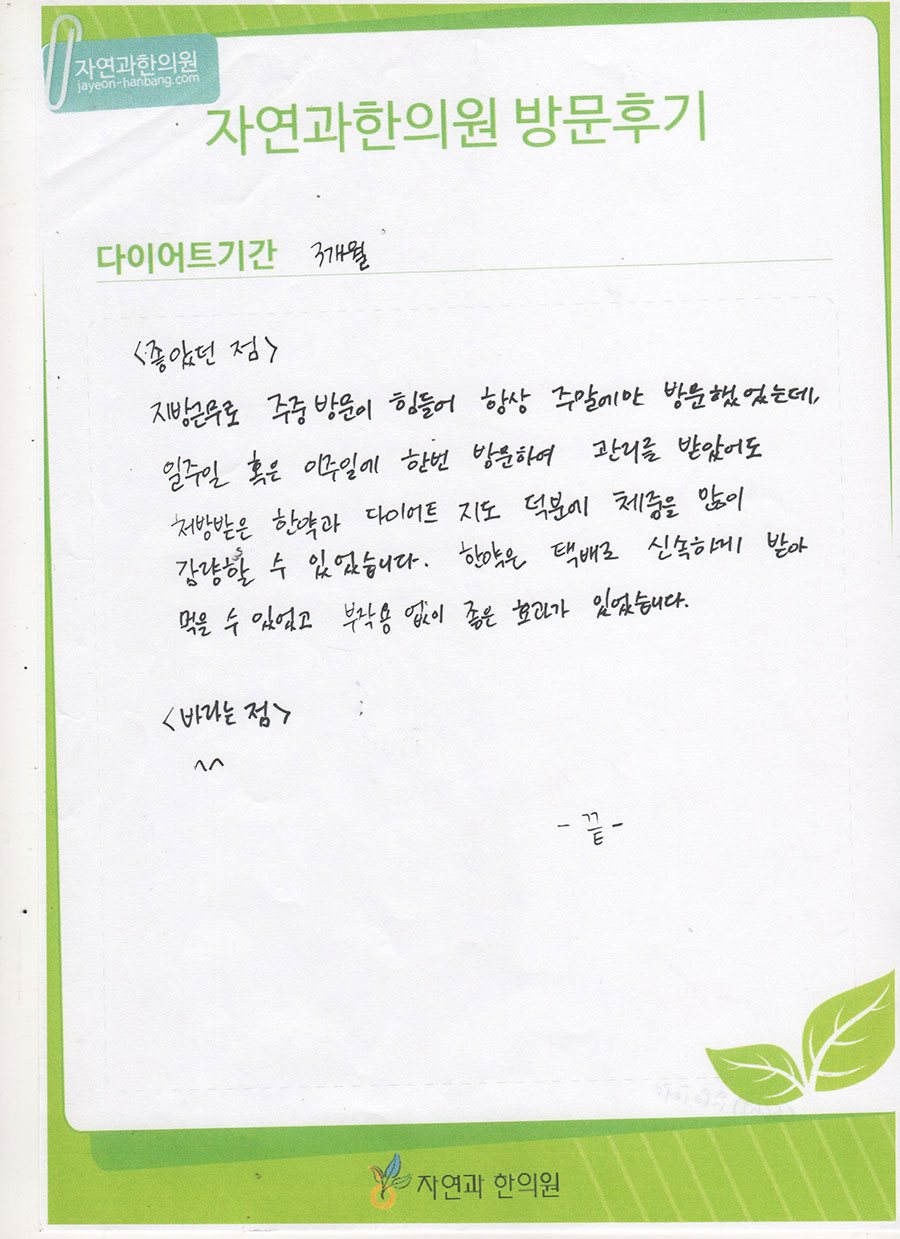 자연과한의원
jayeon-hanbang.com
자연과한의원 방문후기
다이어트기간 3개월
<좋았던 점>
지방근무로 주중 방문이 힘들어 항상 주말에만 방문했었는데,
일주일 혹은 이주일에 한번 방문하여 관리를 받았어도
처방받은 한약과 다이어트 지도 덕분에 체중을 많이
감량할 수 있었습니다. 한약은 택배로 신속하게 받아
먹을 수 있었고 부작용 없이 좋은 효과가 있었습니다.
<바라는 점>
^^
- 끝 -
자연과 한의원